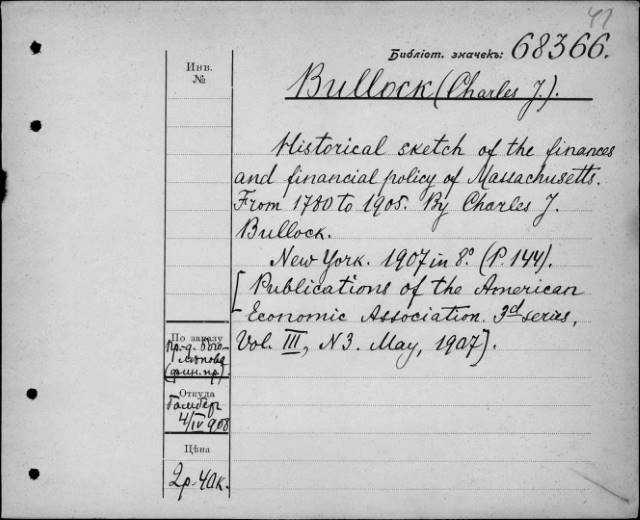 47
Библіот. значекъ: 68366.
Инв.
№
Bullock (Charles J.).
Historical sketch of the finances
and financial policy of Massachusetts.
From 1780 to 1905. By Charles J.
Bullock.
New York. 1907 in 8°. (P. 144).
[Publications of the American
Economic Association. 3d series,
Vol. III, N3. May, 1907].
По заказу
(фин. пр.)
Откуда
4/IV 908
Цѣна
2р-40к.